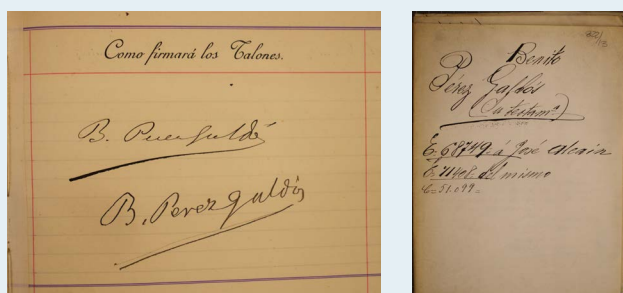 Como firmará los Talones.
B. Perez Galdós
B. Perez Galdós
Benito
Pérez Galdós
(Su testamª)
E. 68749 á José Alcain
E. 71408 del mismo
E=51.099=